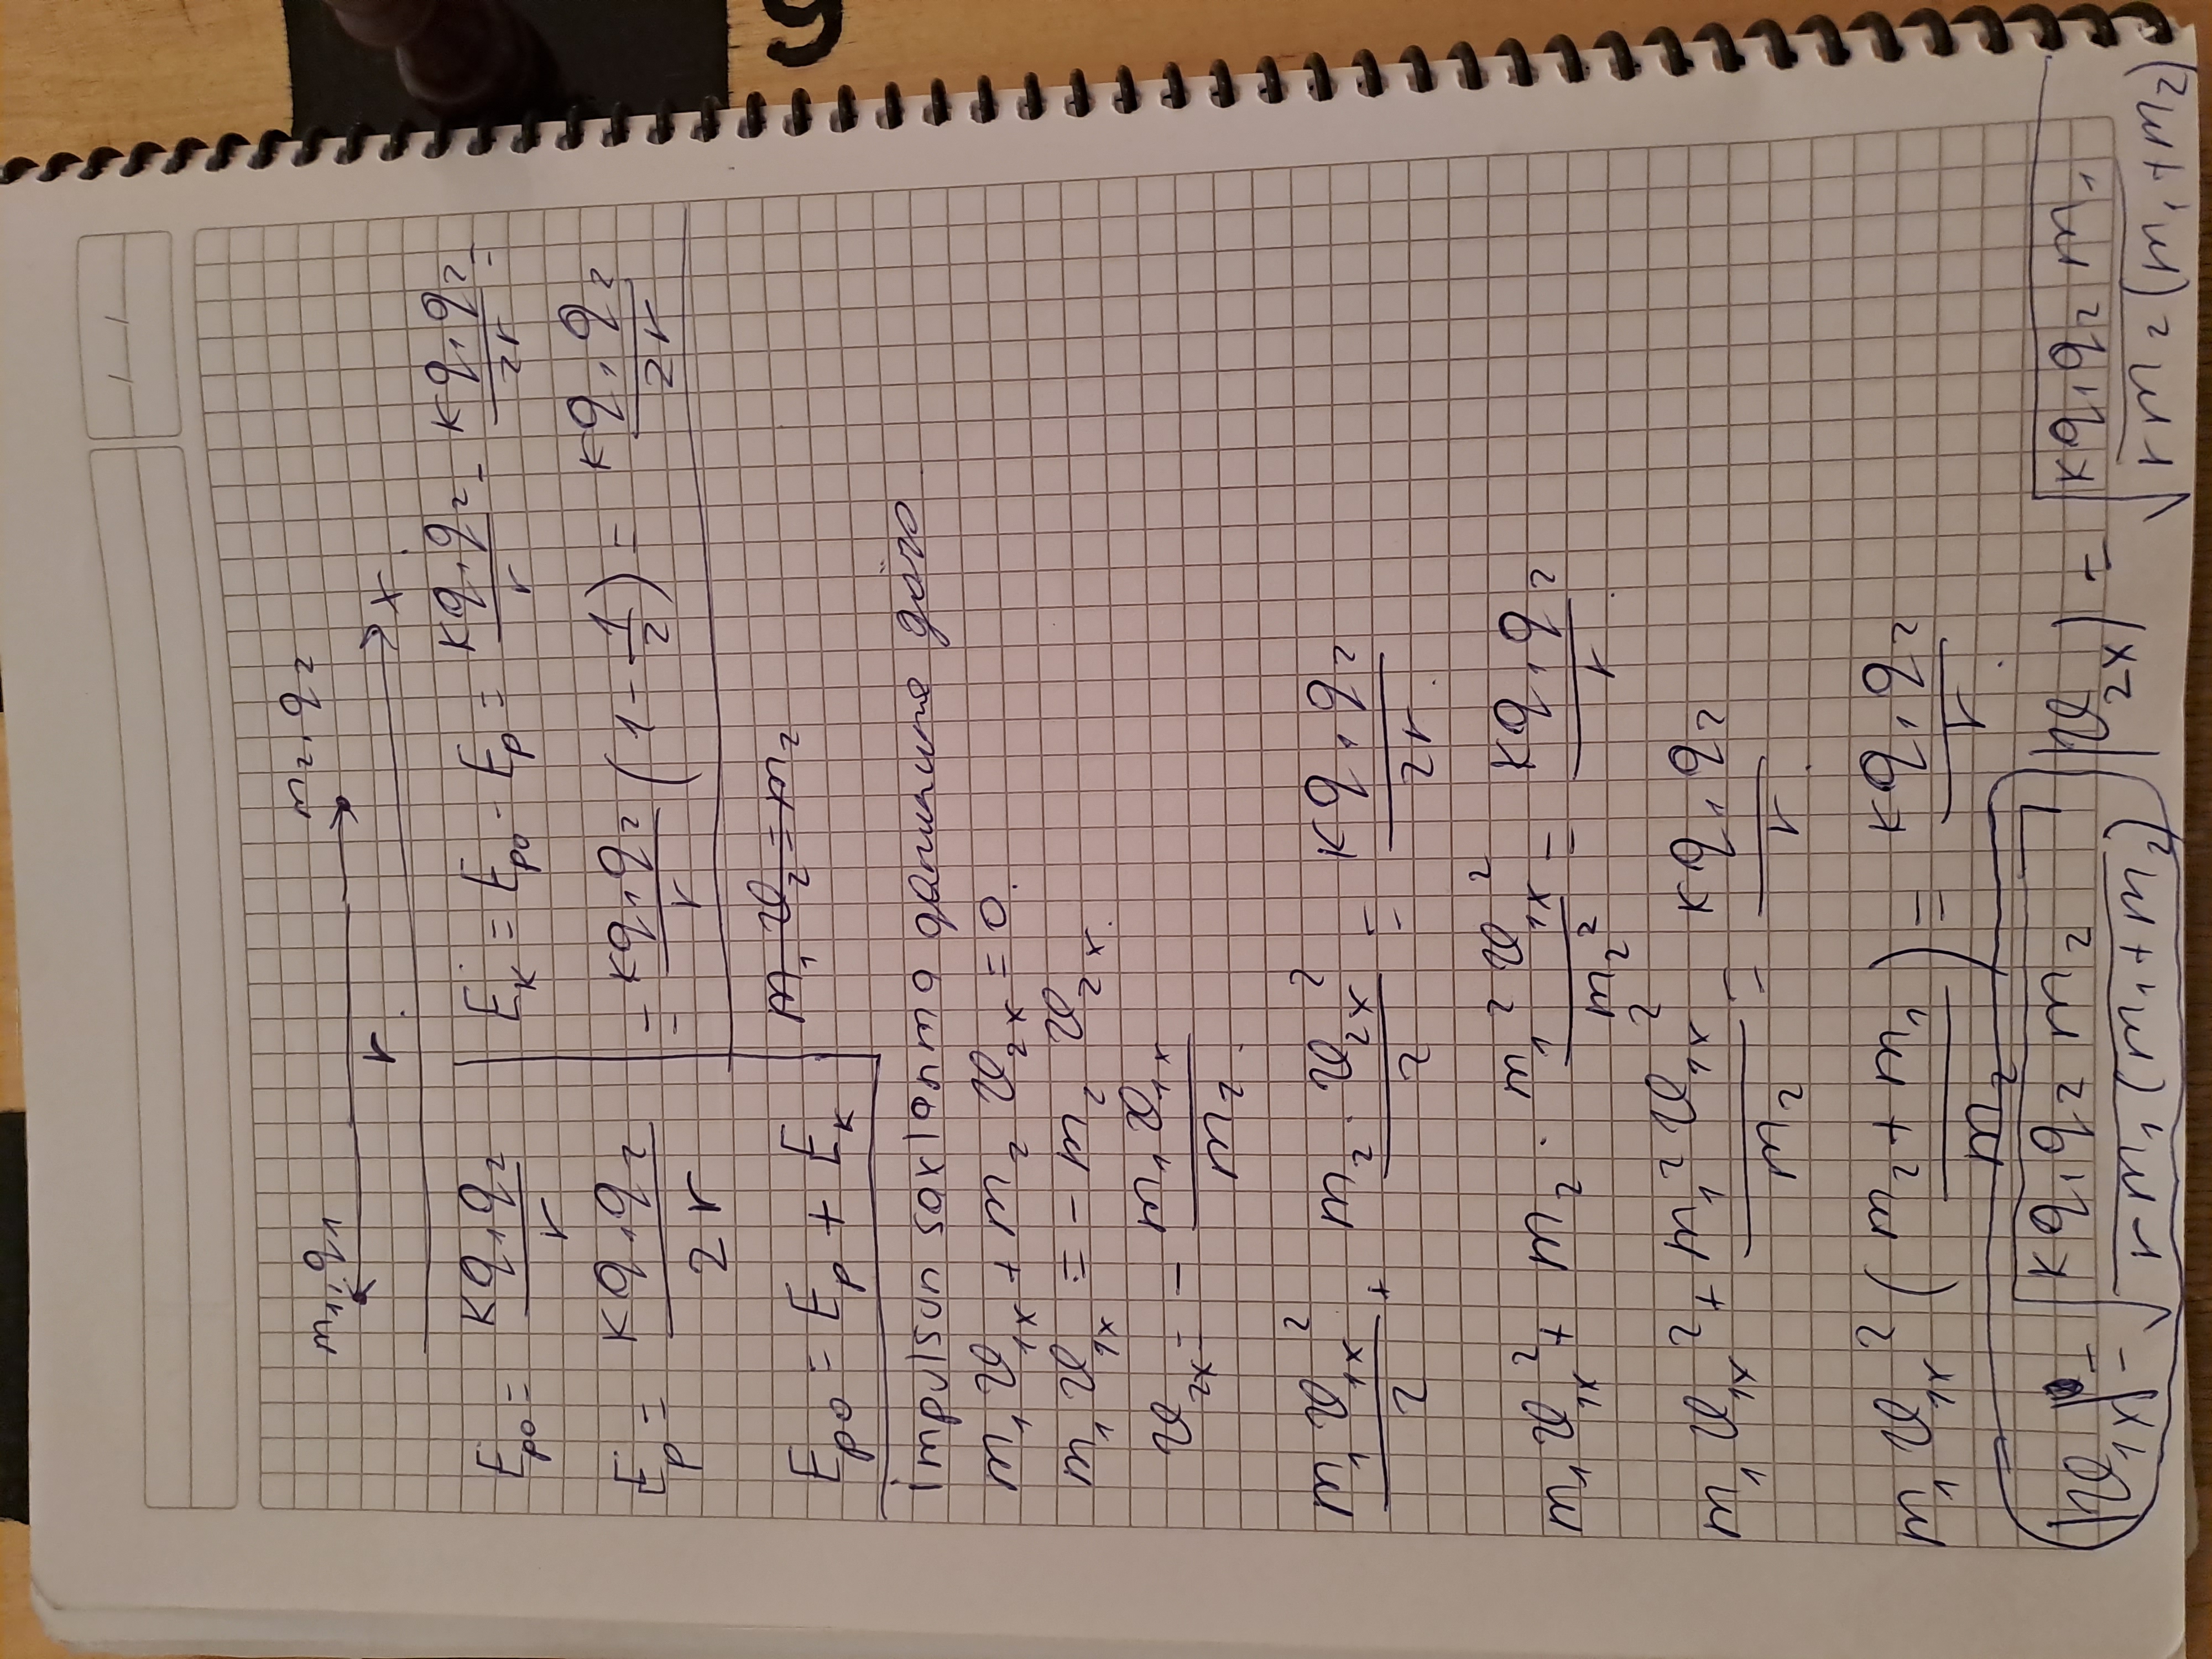 m₁, q₁ m₂, q₂
r. x.
E_p0 = kq₁q₂/r
E_p = kq₁q₂/2r
E_p0 = E_p + E_k
E_k = E_p0 - E_p = kq₁q₂/r - kq₁q₂/2r =
= kq₁q₂/r (1 - 1/2) = kq₁q₂/2r
impulsun saxlanma
m₁v₁ₓ + m₂v₂ₓ = 0.
m₁v₁ₓ = - m₂v₂ₓ.
v₂ₓ = - m₁v₁ₓ/m₂.
m₁v₁ₓ²/2 + m₂·v₂ₓ²/2 = kq₁q₂/2r.
m₁v₁ₓ² + m₂ · m₁²v₁ₓ²/m₂² = kq₁q₂/r.
m₁v₁ₓ² + m₁²v₁ₓ²/m₂ = kq₁q₂/r.
m₁v₁ₓ² (m₂ + m₁/m₂) = kq₁q₂/r.
|v₁ₓ| = √(kq₁q₂m₂/rm₁(m₁+m₂)) |v₂ₓ| = √(kq₁q₂m₁/rm₂(m₁+m₂))
9